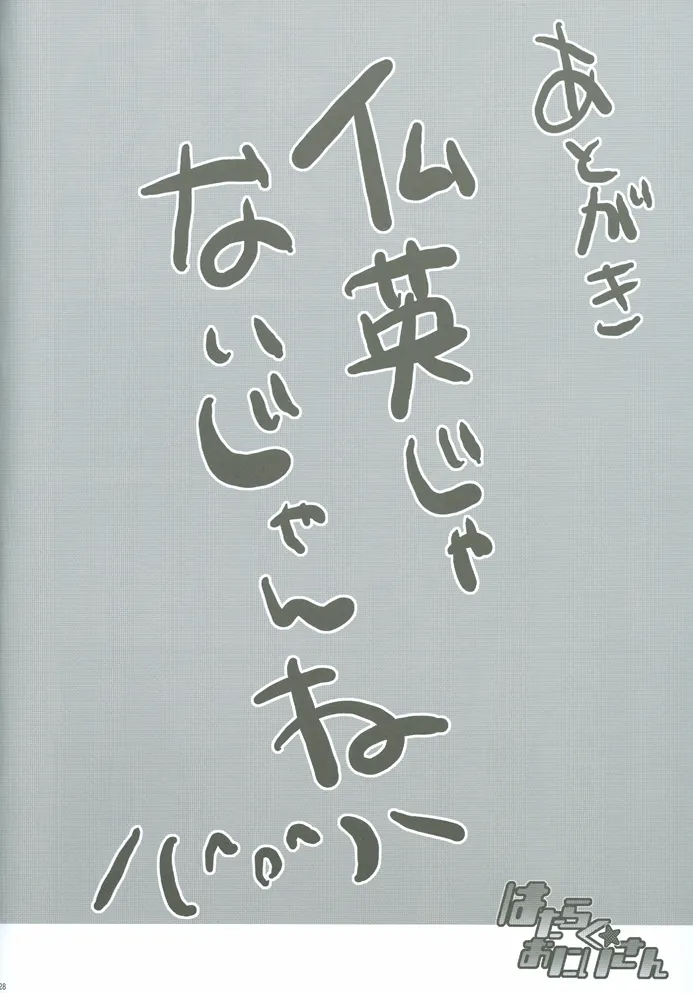 あとがき
仏英じゃ
ないじゃんね
/(^o^)\
はたらく★
おにいさん
28